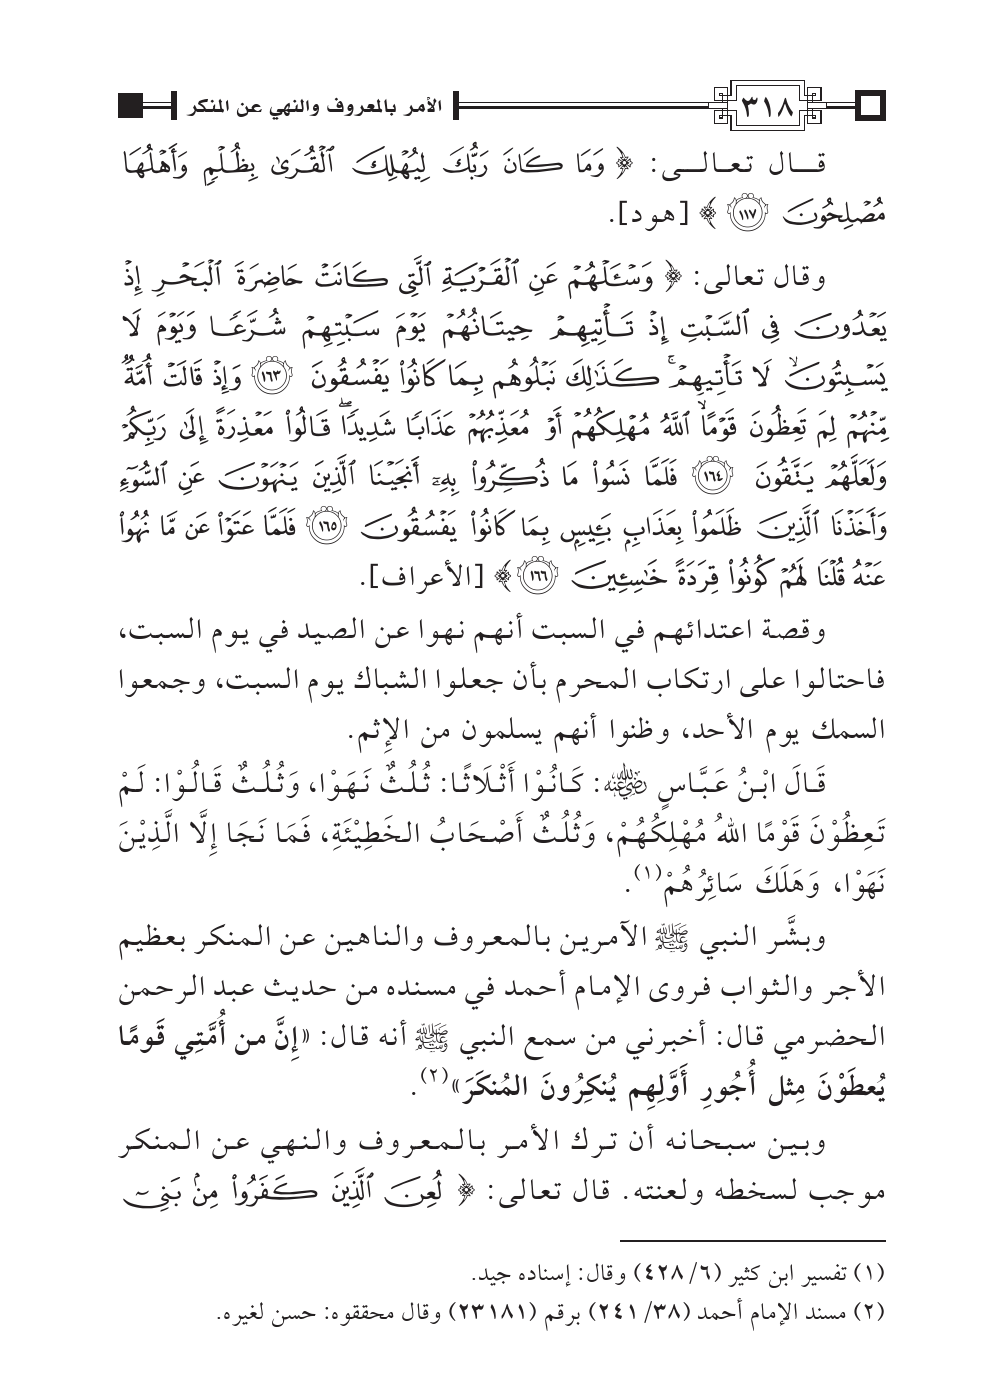 ٣١٨ الأمر بالمعروف والنهي عن المنكر
قال تعالى: ﴿ وَمَا كَانَ رَبُّكَ لِيُهْلِكَ ٱلْقُرَىٰ بِظُلْمٍ وَأَهْلُهَا
مُصْلِحُونَ ١١٧ ﴾ [هود].
وقال تعالى: ﴿ وَسْـَٔلْهُمْ عَنِ ٱلْقَرْيَةِ ٱلَّتِى كَانَتْ حَاضِرَةَ ٱلْبَحْرِ إِذْ
يَعْدُونَ فِى ٱلسَّبْتِ إِذْ تَأْتِيهِمْ حِيتَانُهُمْ يَوْمَ سَبْتِهِمْ شُرَّعًا وَيَوْمَ لَا
يَسْبِتُونَ ۙ لَا تَأْتِيهِمْ ۚ كَذَٰلِكَ نَبْلُوهُم بِمَا كَانُوا۟ يَفْسُقُونَ ١٦٣ وَإِذْ قَالَتْ أُمَّةٌ
مِّنْهُمْ لِمَ تَعِظُونَ قَوْمًا ۙ ٱللَّهُ مُهْلِكُهُمْ أَوْ مُعَذِّبُهُمْ عَذَابًا شَدِيدًا ۖ قَالُوا۟ مَعْذِرَةً إِلَىٰ رَبِّكُمْ
وَلَعَلَّهُمْ يَتَّقُونَ ١٦٤ فَلَمَّا نَسُوا۟ مَا ذُكِّرُوا۟ بِهِۦٓ أَنجَيْنَا ٱلَّذِينَ يَنْهَوْنَ عَنِ ٱلسُّوٓءِ
وَأَخَذْنَا ٱلَّذِينَ ظَلَمُوا۟ بِعَذَابٍۭ بَـِٔيسٍۭ بِمَا كَانُوا۟ يَفْسُقُونَ ١٦٥ فَلَمَّا عَتَوْا۟ عَن مَّا نُهُوا۟
عَنْهُ قُلْنَا لَهُمْ كُونُوا۟ قِرَدَةً خَٰسِـِٔينَ ١٦٦ ﴾ [الأعراف].
وقصة اعتدائهم في السبت أنهم نهوا عن الصيد في يوم السبت،
فاحتالوا على ارتكاب المحرم بأن جعلوا الشباك يوم السبت، وجمعوا
السمك يوم الأحد، وظنوا أنهم يسلمون من الإثم.
قَالَ ابْنُ عَبَّاسٍ رضي الله عنه: كَانُوْا أَثْلَاثًا: ثُلُثٌ نَهَوْا، وَثُلُثٌ قَالُوْا: لَمْ
تَعِظُوْنَ قَوْمًا اللهُ مُهْلِكُهُمْ، وَثُلُثٌ أَصْحَابُ الخَطِيْئَةِ، فَمَا نَجَا إِلَّا الَّذِيْنَ
نَهَوْا، وَهَلَكَ سَائِرُهُمْ(١).
وبشَّر النبي ﷺ الآمرين بالمعروف والناهين عن المنكر بعظيم
الأجر والثواب فروى الإمام أحمد في مسنده من حديث عبد الرحمن
الحضرمي قال: أخبرني من سمع النبي ﷺ أنه قال: «إنَّ من أُمَّتِي قَومًا
يُعطَوْنَ مِثل أُجُورِ أَوَّلِهِم يُنكِرُونَ المُنكَرَ»(٢).
وبين سبحانه أن ترك الأمر بالمعروف والنهي عن المنكر
موجب لسخطه ولعنته. قال تعالى: ﴿ لُعِنَ ٱلَّذِينَ كَفَرُوا۟ مِنۢ بَنِىٓ
(١) تفسير ابن كثير (٤٢٨/٦) وقال: إسناده جيد.
(٢) مسند الإمام أحمد (٢٤١/٣٨) برقم (٢٣١٨١) وقال محققوه: حسن لغيره.